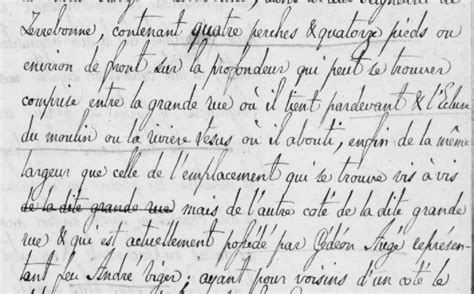 Terrebonne, contenant quatre perches & quatorze pieds ou
environ de front sur la profondeur qui peut se trouver
comprise entre la grande rue où il tient pardevant & l'Eclu
du moulin ou la rivière Jesus où il abouti, enfin de la même
largeur que celle de l'emplacement qui se trouve vis à vis
de la dite grande rue mais de l'autre coté de la dite grande
rue & qui est actuellement possédé par Gédéon Augé représen-
tant feu André Viger; ayant pour voisins d'un coté le